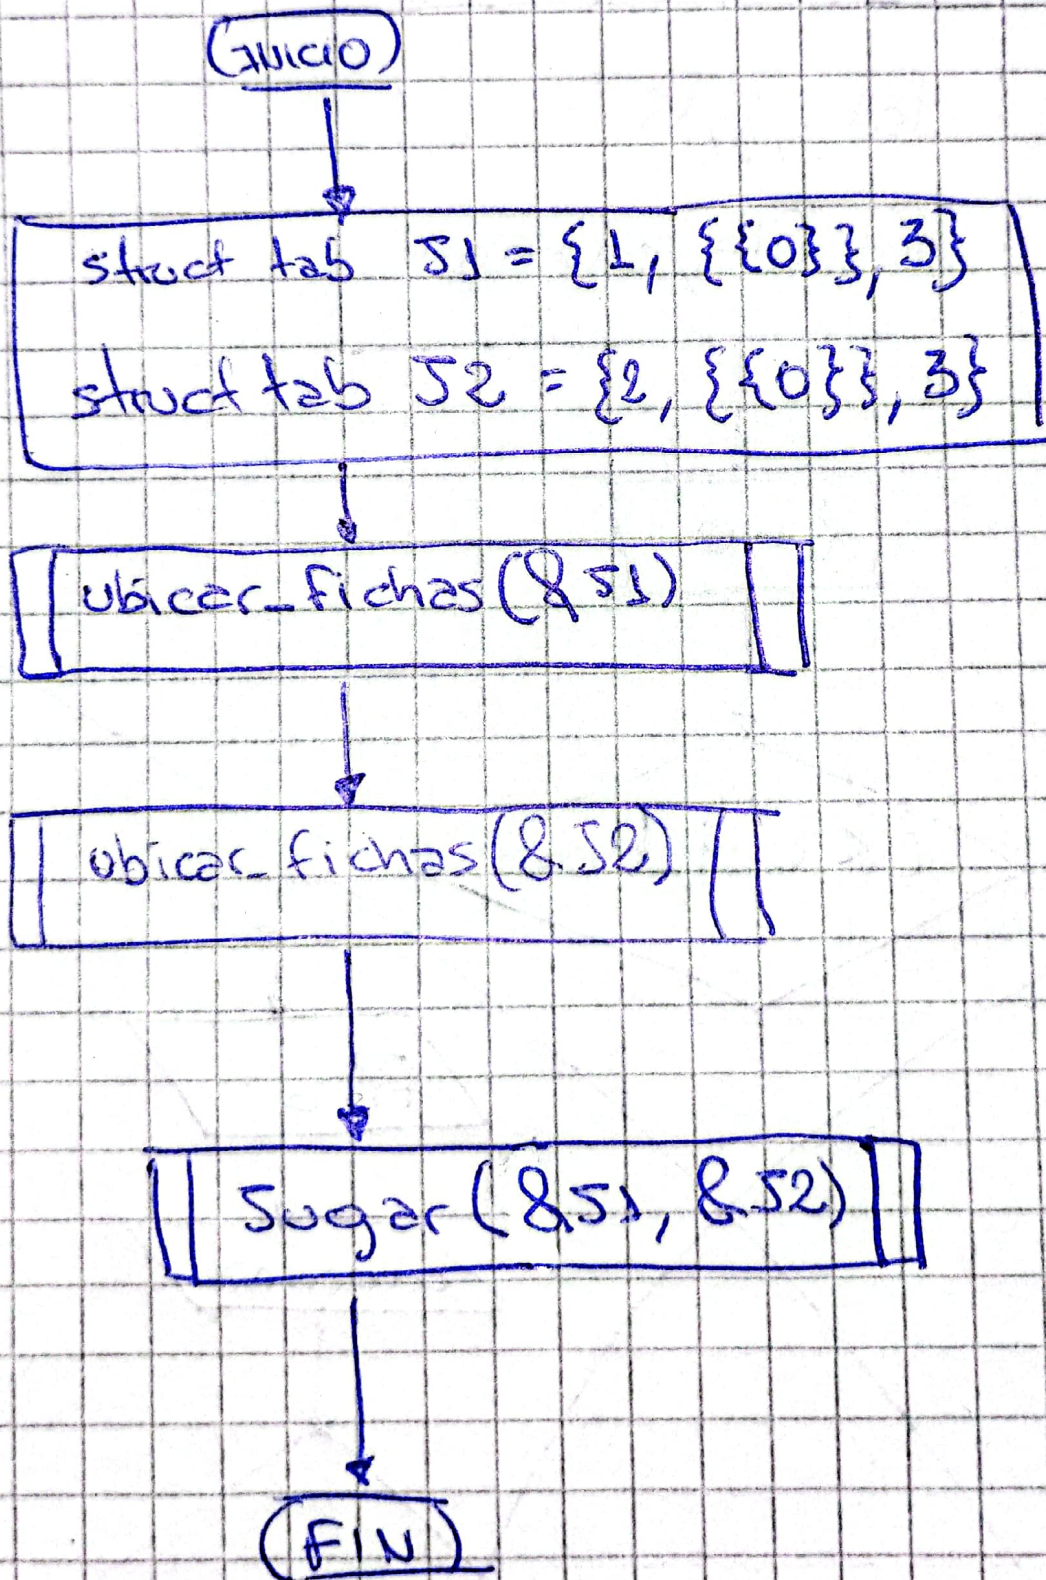 INICIO
struct tab J1 = {1, {{0}}, 3}
struct tab J2 = {2, {{0}}, 3}
ubicar_fichas(&J1)
ubicar_fichas(&J2)
Jugar(&J1, &J2)
FIN